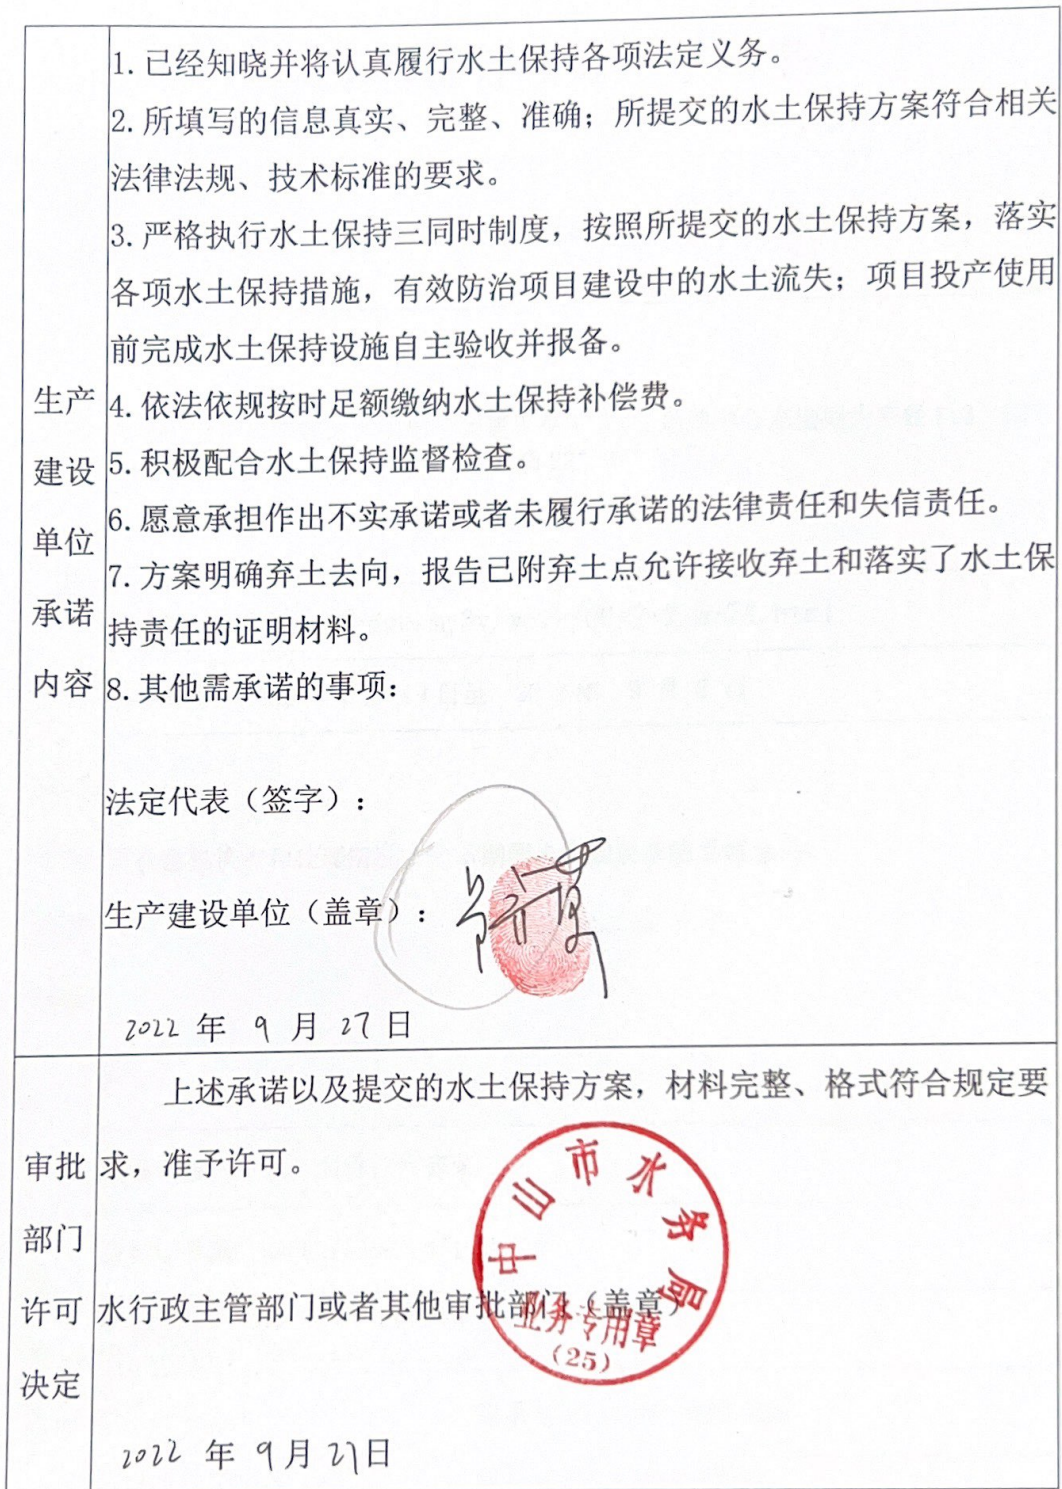 1.已经知晓并将认真履行水土保持各项法定义务。
2.所填写的信息真实、完整、准确；所提交的水土保持方案符合相关
法律法规、技术标准的要求。
3.严格执行水土保持三同时制度，按照所提交的水土保持方案，落实
各项水土保持措施，有效防治项目建设中的水土流失；项目投产使用
前完成水土保持设施自主验收并报备。
生产
建设
单位
承诺
内容
4.依法依规按时足额缴纳水土保持补偿费。
5.积极配合水土保持监督检查。
6.愿意承担作出不实承诺或者未履行承诺的法律责任和失信责任。
7.方案明确弃土去向，报告已附弃土点允许接收弃土和落实了水土保
持责任的证明材料。
8.其他需承诺的事项：
法定代表（签字）：
生产建设单位（盖章）：
2022 年 9 月 27 日
审批
部门
许可
决定
上述承诺以及提交的水土保持方案，材料完整、格式符合规定要
求，准予许可。
水行政主管部门或者其他审批部门（盖章）
中山市水务局
业务专用章
（25）
2022 年 9 月 27 日